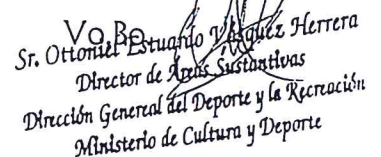 Vo.Bo.
Sr. Ottoniel Estuardo Vásquez Herrera
Director de Áreas Sustantivas
Dirección General del Deporte y la Recreación
Ministerio de Cultura y Deporte